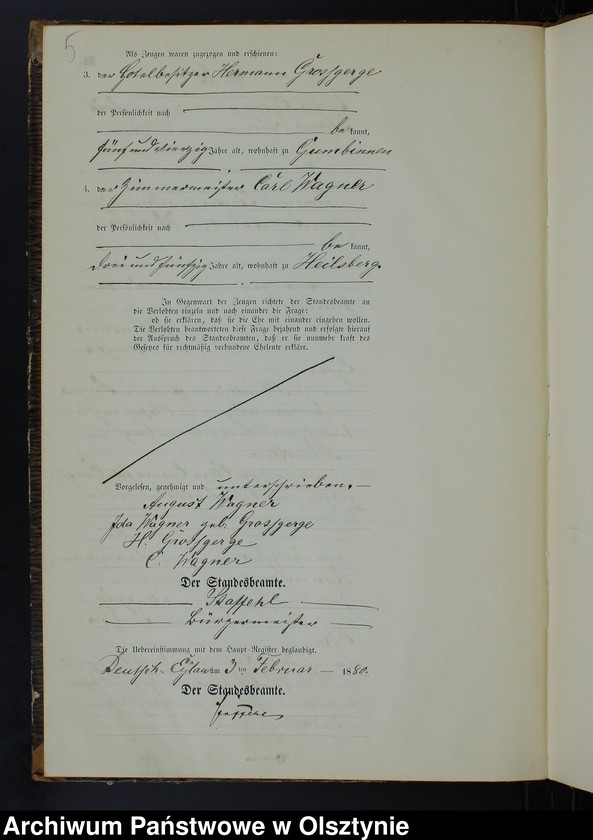 5
Als Zeugen waren zugezogen und erschienen:
3. der Hotelbesitzer Hermann Grossgerge
der Persönlichkeit nach
be kannt,
fünfundvierzig Jahre alt, wohnhaft zu Gumbinnen
4. der Zimmermeister Carl Wagner
der Persönlichkeit nach
be kannt,
dreiundfünfzig Jahre alt, wohnhaft zu Heilsberg.
In Gegenwart der Zeugen richtete der Standesbeamte an
die Verlobten einzeln und nach einander die Frage:
ob sie erklären, daß sie die Ehe mit einander eingehen wollen.
Die Verlobten beantworteten diese Frage bejahend und erfolgte hierauf
der Ausspruch des Standesbeamten, daß er sie nunmehr kraft des
Gesetzes für rechtmäßig verbundene Eheleute erkläre.
Vorgelesen, genehmigt und unterschrieben. —
August Wagner
Ida Wagner geb: Grossgerge
H Grossgerge
C. Wagner
Der Standesbeamte.
Staffehl
Bürgermeister
Die Uebereinstimmung mit dem Haupt-Register beglaubigt.
Deutsch-Eylau am 3 ten Februar — 1880.
Der Standesbeamte.
Archiwum Państwowe w Olsztynie